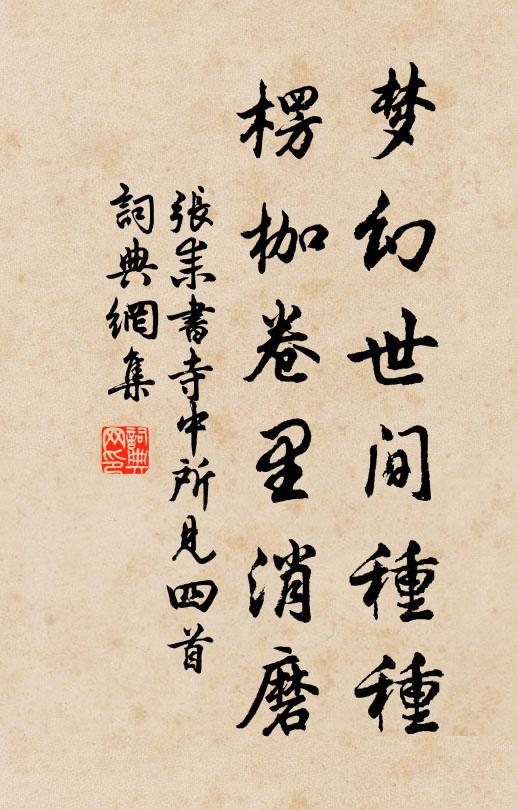 梦幻世间種種
楞枷卷里消磨
張耒書寺中所見四首
詞典網集
詞典
网印